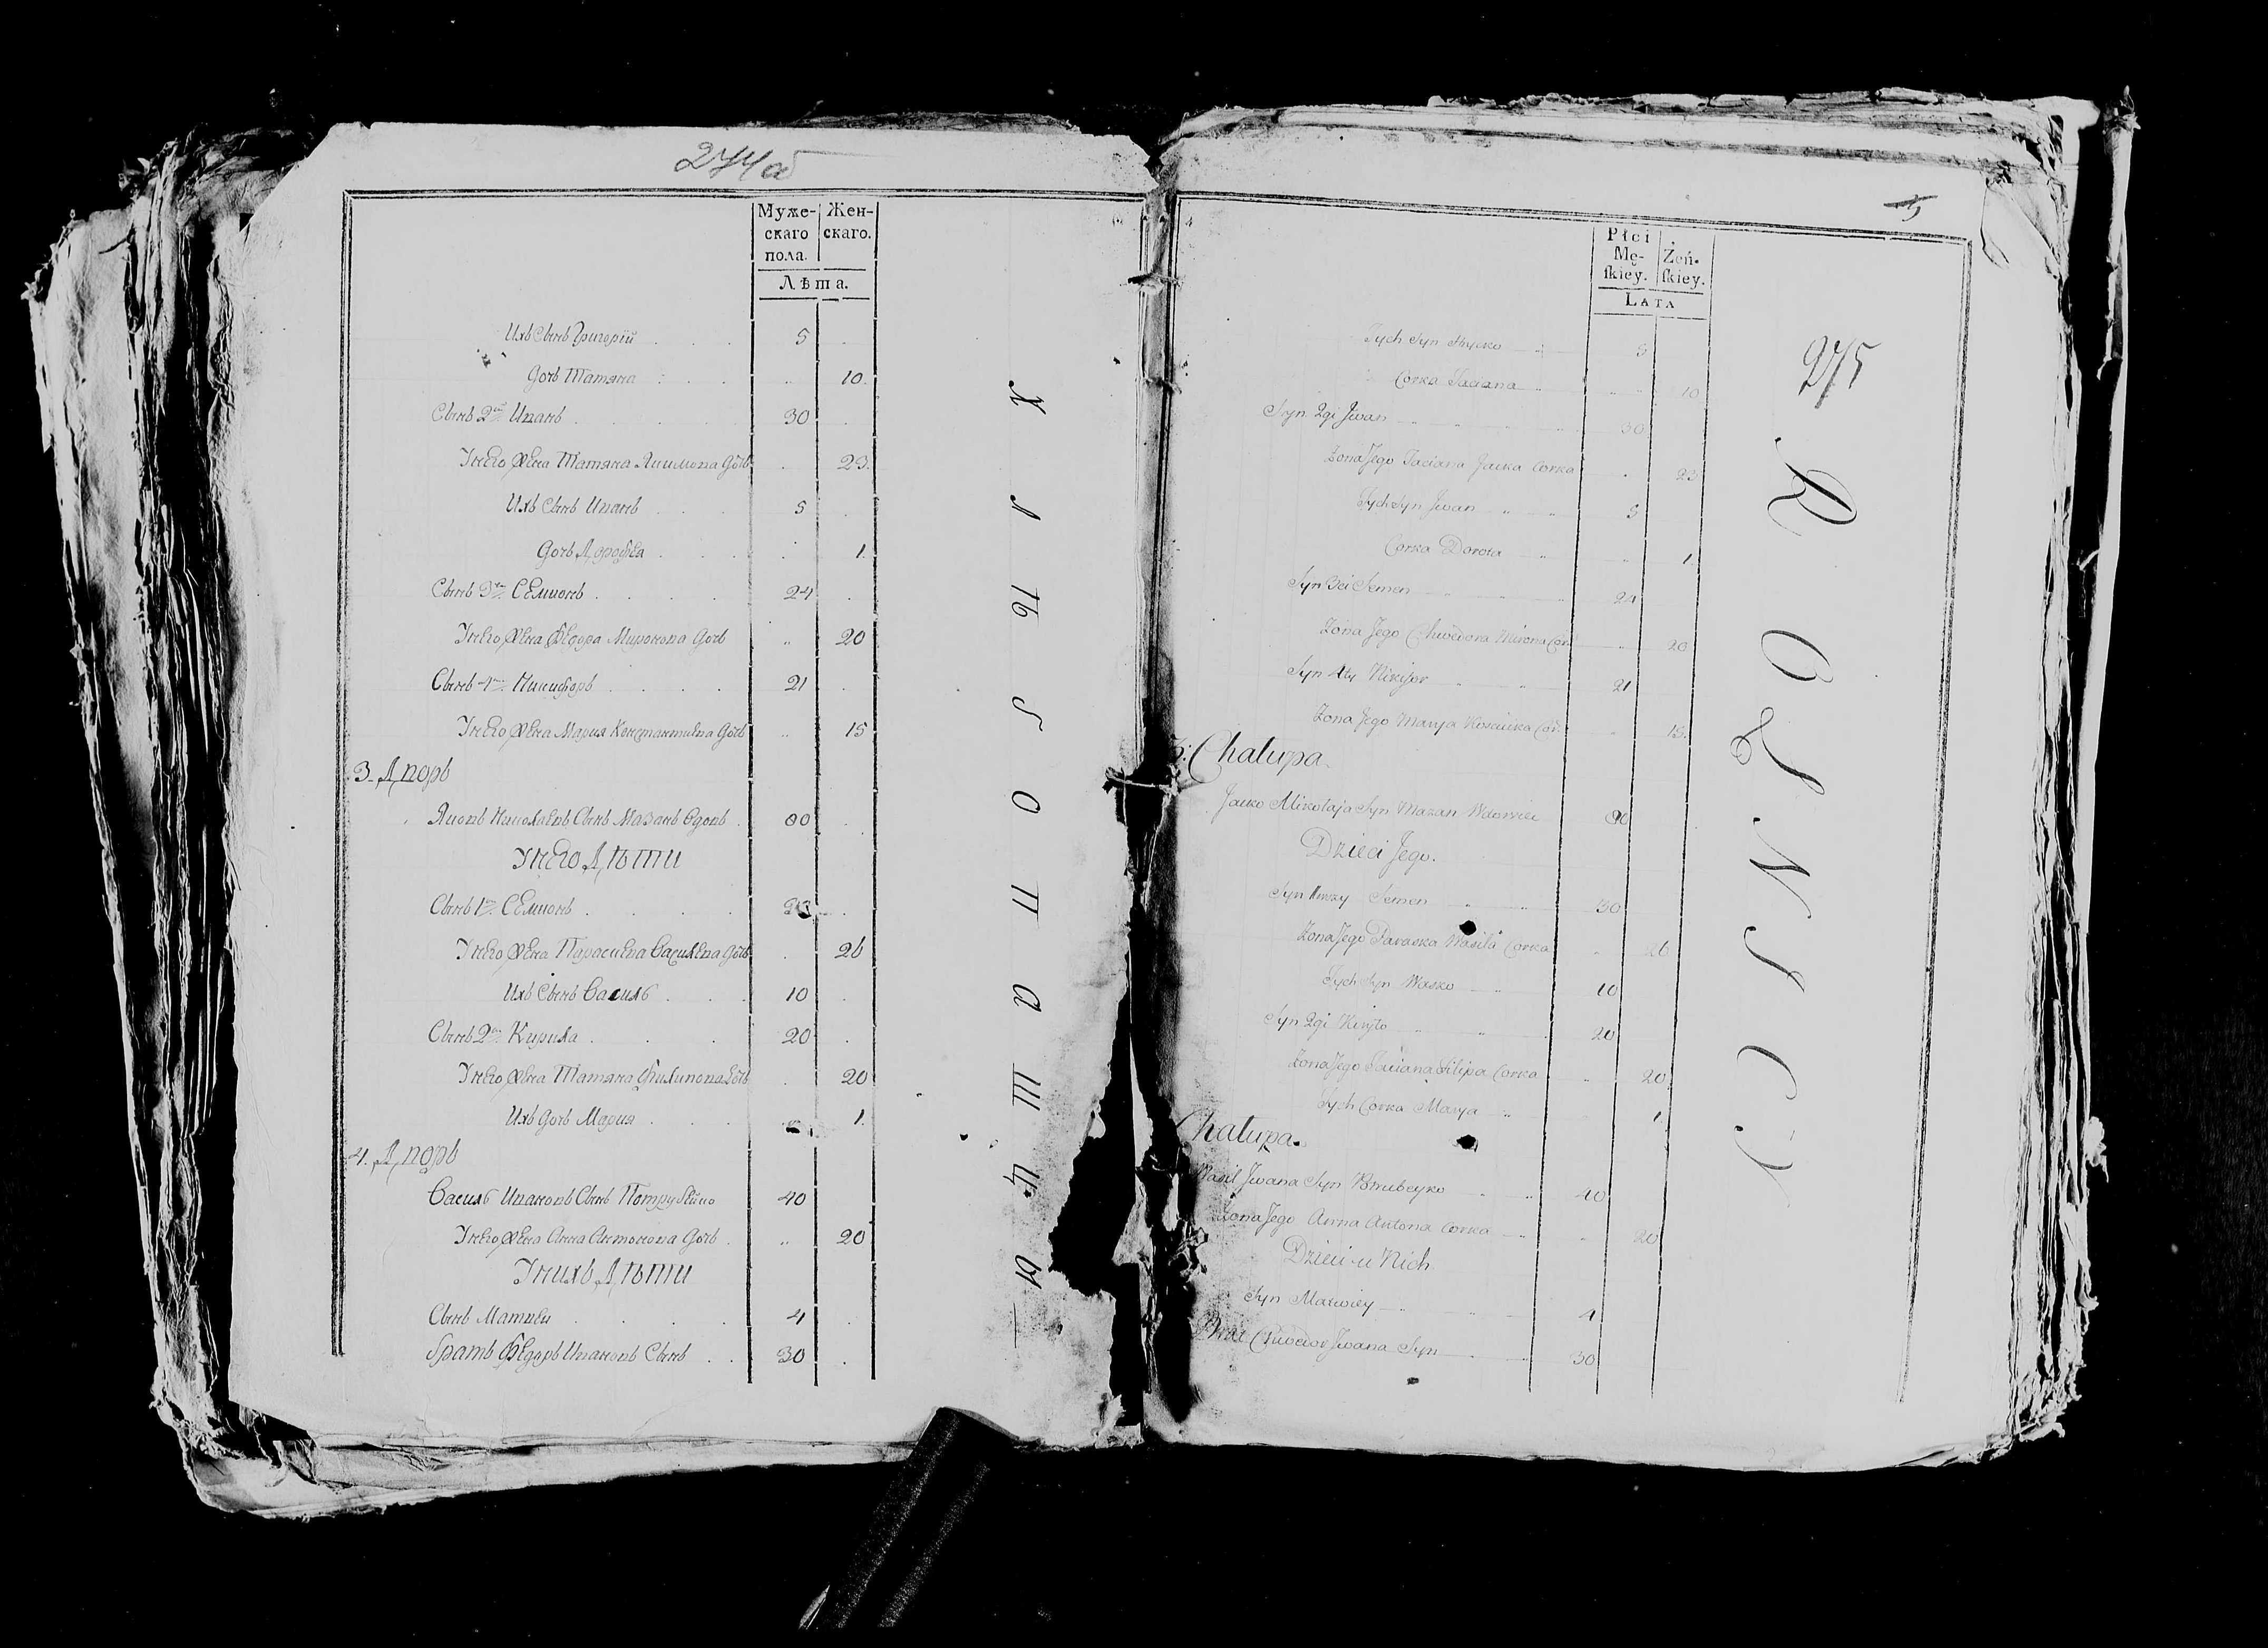 274об
Муже-
скаго
пола.
Жен-
скаго.
Лѣта.
Ихъ Сынъ Григорій 5
Дочь Татяна 10.
Сынъ 2й Иванъ 30
У него Жена Татяна Якимова Дочь 23.
Ихъ Сынъ Иванъ 5
Дочь Дорофѣа 1.
Сынъ 3й Семионъ 24
У него Жена Федора Миронова Дочь 20
Сынъ 4й Никифоръ 21
У него Жена Мария Константиева Дочь 15
3. Дворъ
Яковъ Николаевъ Сынъ Мазанъ Вдовъ 80
У него Дѣти
Сынъ 1й Семионъ
У него Жена Параскева Васильева Дочь 26
Ихъ Сынъ Василь 10
Сынъ 2й Кирила 20
У него Жена Татяна Филипова Дочь 20
Ихъ Дочь Мария 1.
4. Дворъ
Василь Ивановъ Сынъ Потрубейко 40
У него Жена Анна Антонова Дочь 20
У нихъ Дѣти
Сынъ Матвей 4
Братъ Федоръ Ивановъ Сынъ 30
5
275
Płci
Mę-
skiey.
Żeń-
skiey.
LATA
Tych Syn Hrycko 5
Corka Taciana 10
Syn 2gi Jwan 30
Zona Jego Taciana Jacka Corka 23
Tych Syn Jwan 5
Corka Dorota 1
Syn 3ci Semen 24
Zona Jego Chwedora Mirona Cor. 20
Syn 4ty Nikifor 21
Zona Jego Marya Kosciuka Cor. 15.
3. Chałupa.
Jacko Mikołaja Syn Mazan Wdowiec 80
Dzieci Jego.
Syn Pierwszy Semen 30
Zona Jego Paraska Wasila Corka 26
Tych Syn Wasko 10
Syn 2gi Kiryło 20
Zona Jego Taciana Filipa Corka 20
Tych Corka Marya 1
Chałupa.
Wasil Jwana Syn Potrubeyko 40
Zona Jego Anna Antona Corka 20
Dzieci u Nich
Syn Matwiey 4
Brat Chwedor Jwana Syn 30